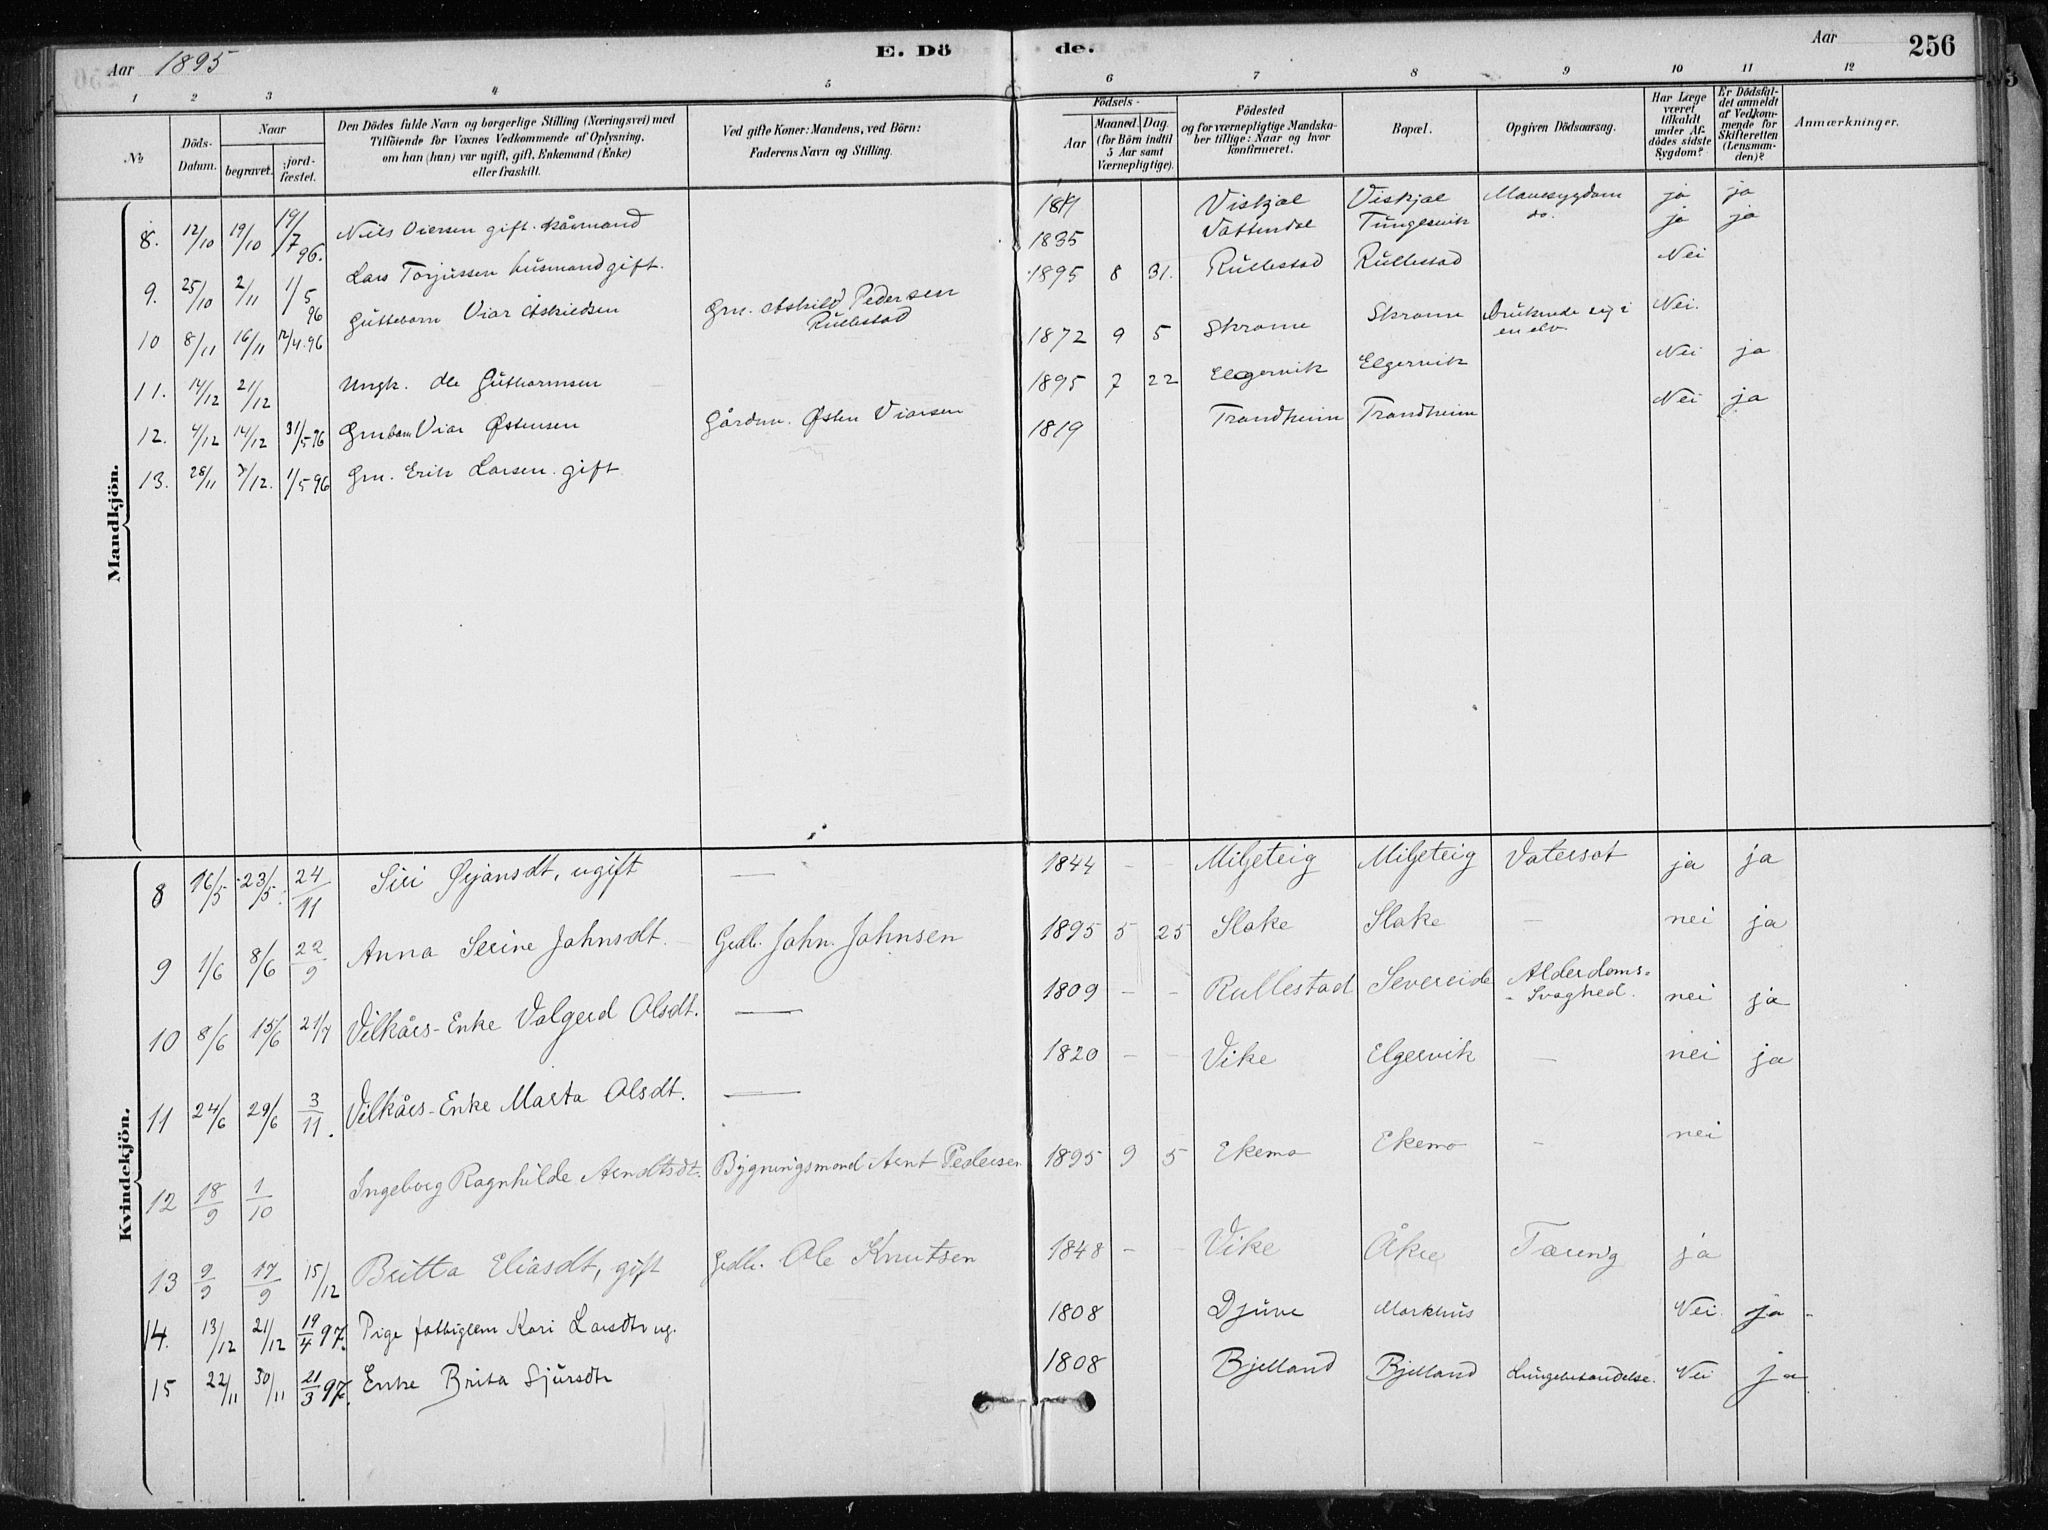 Aar 1895
E. Dö
de.
Aar
256
1 2 3 4 5 6 7 8 9 10 11 12
№
Döds-
Datum.
Naar
begravet.
jord-
fæstet.
Den Dödes fulde Navn og borgerlige Stilling (Næringsvei) med
Tilföiende for Voxnes Vedkommende af Oplysning,
om han (hun) var ugift, gift, Enkemand (Enke)
eller fraskilt.
Ved gifte Koner: Mandens, ved Börn:
Faderens Navn og Stilling.
Födsels-
Aar
Maaned. Dag.
(for Börn indtil
5 Aar samt
Værnepligtige).
Födested
og for værnepligtige Mandska-
ber tillige: Naar og hvor
konfirmeret.
Bopæl.
Opgiven Dödsaarsag.
Har Læge
været
tilkaldt
under Af-
dödes sidste
Sygdom?
Er Dödsfal-
det anmeldt
af Vedkom-
mende for
Skifteretten
(Lensman-
den)?
Anmærkninger.
Mandkjön.
8. 12/10 19/10 19/7 96. Nils Viersen gift. Viskjal Viskjal Mavesygdom ja ja
9. 25/10 2/11 1/5 96 Lars Torjussen husmand gift. 1835 Vattendal Tungesvik do. ja ja
10 8/11 16/11 12/4.96 Guttebarn Viar Askildsen Grn. Askild Pedersen
Rullestad 1895 8 31. Rullestad Rullestad Nei
11. 14/12 21/12 Ungk. Ole Guthormsen 1872 9 5 Skromme Skromme Druknede sig i
en elv. Nei.
12. 4/12 14/12 31/5-96 Grnbarn Viar Østensen Gårdm. Østen Viarsen 1895 7 22 Elgervik Elgervik Nei ja
13. 28/11 7/12. 1/5 96 Grn. Erik Larsen. gift 1819 Trondheim Trondheim Nei ja
Kvindekjön.
8 16/5 23/5 24/11 Siri Ørjansdt, ugift — 1844 - - Miljeteig Miljeteig Vatersot ja ja
9 1/6 8/6 22/9 Anna Serine Johnsdt. Grdb. John. Johnsen 1895 5 25 Slake Slake — nei ja
10 8/6 15/6 21/7 Vilkårs-Enke Valgerd Olsdt. — 1809 - - Rullestad Severeide Alderdoms-
-Svaghed. nei ja
11 24/6 29/6 3/11. Vilkårs-Enke Marta Olsdt. — 1820 - - Vike Elgervik — nei ja
12 18/9 1/10 Ingeborg Ragnhilde Arndtsdt. Bygningsmand Arnt Pedersen 1895 9 5 Ekemo Ekemo - nei
13 9/9 17/9 15/12 Britta Eliasdt, gift Grdb. Ole Knutsen 1848 - - Vike Åkre Tæring ja
14. 13/12 21/12 19/4 97. Pige fattiglem Kari Larsdtr ug. 1808 Djuve Markhus Nei ja -
15 22/11 30/11 21/3 97. Enke Brita Sjursdtr 1808 Bjelland Bjelland Lungebetændelse. Nei ja